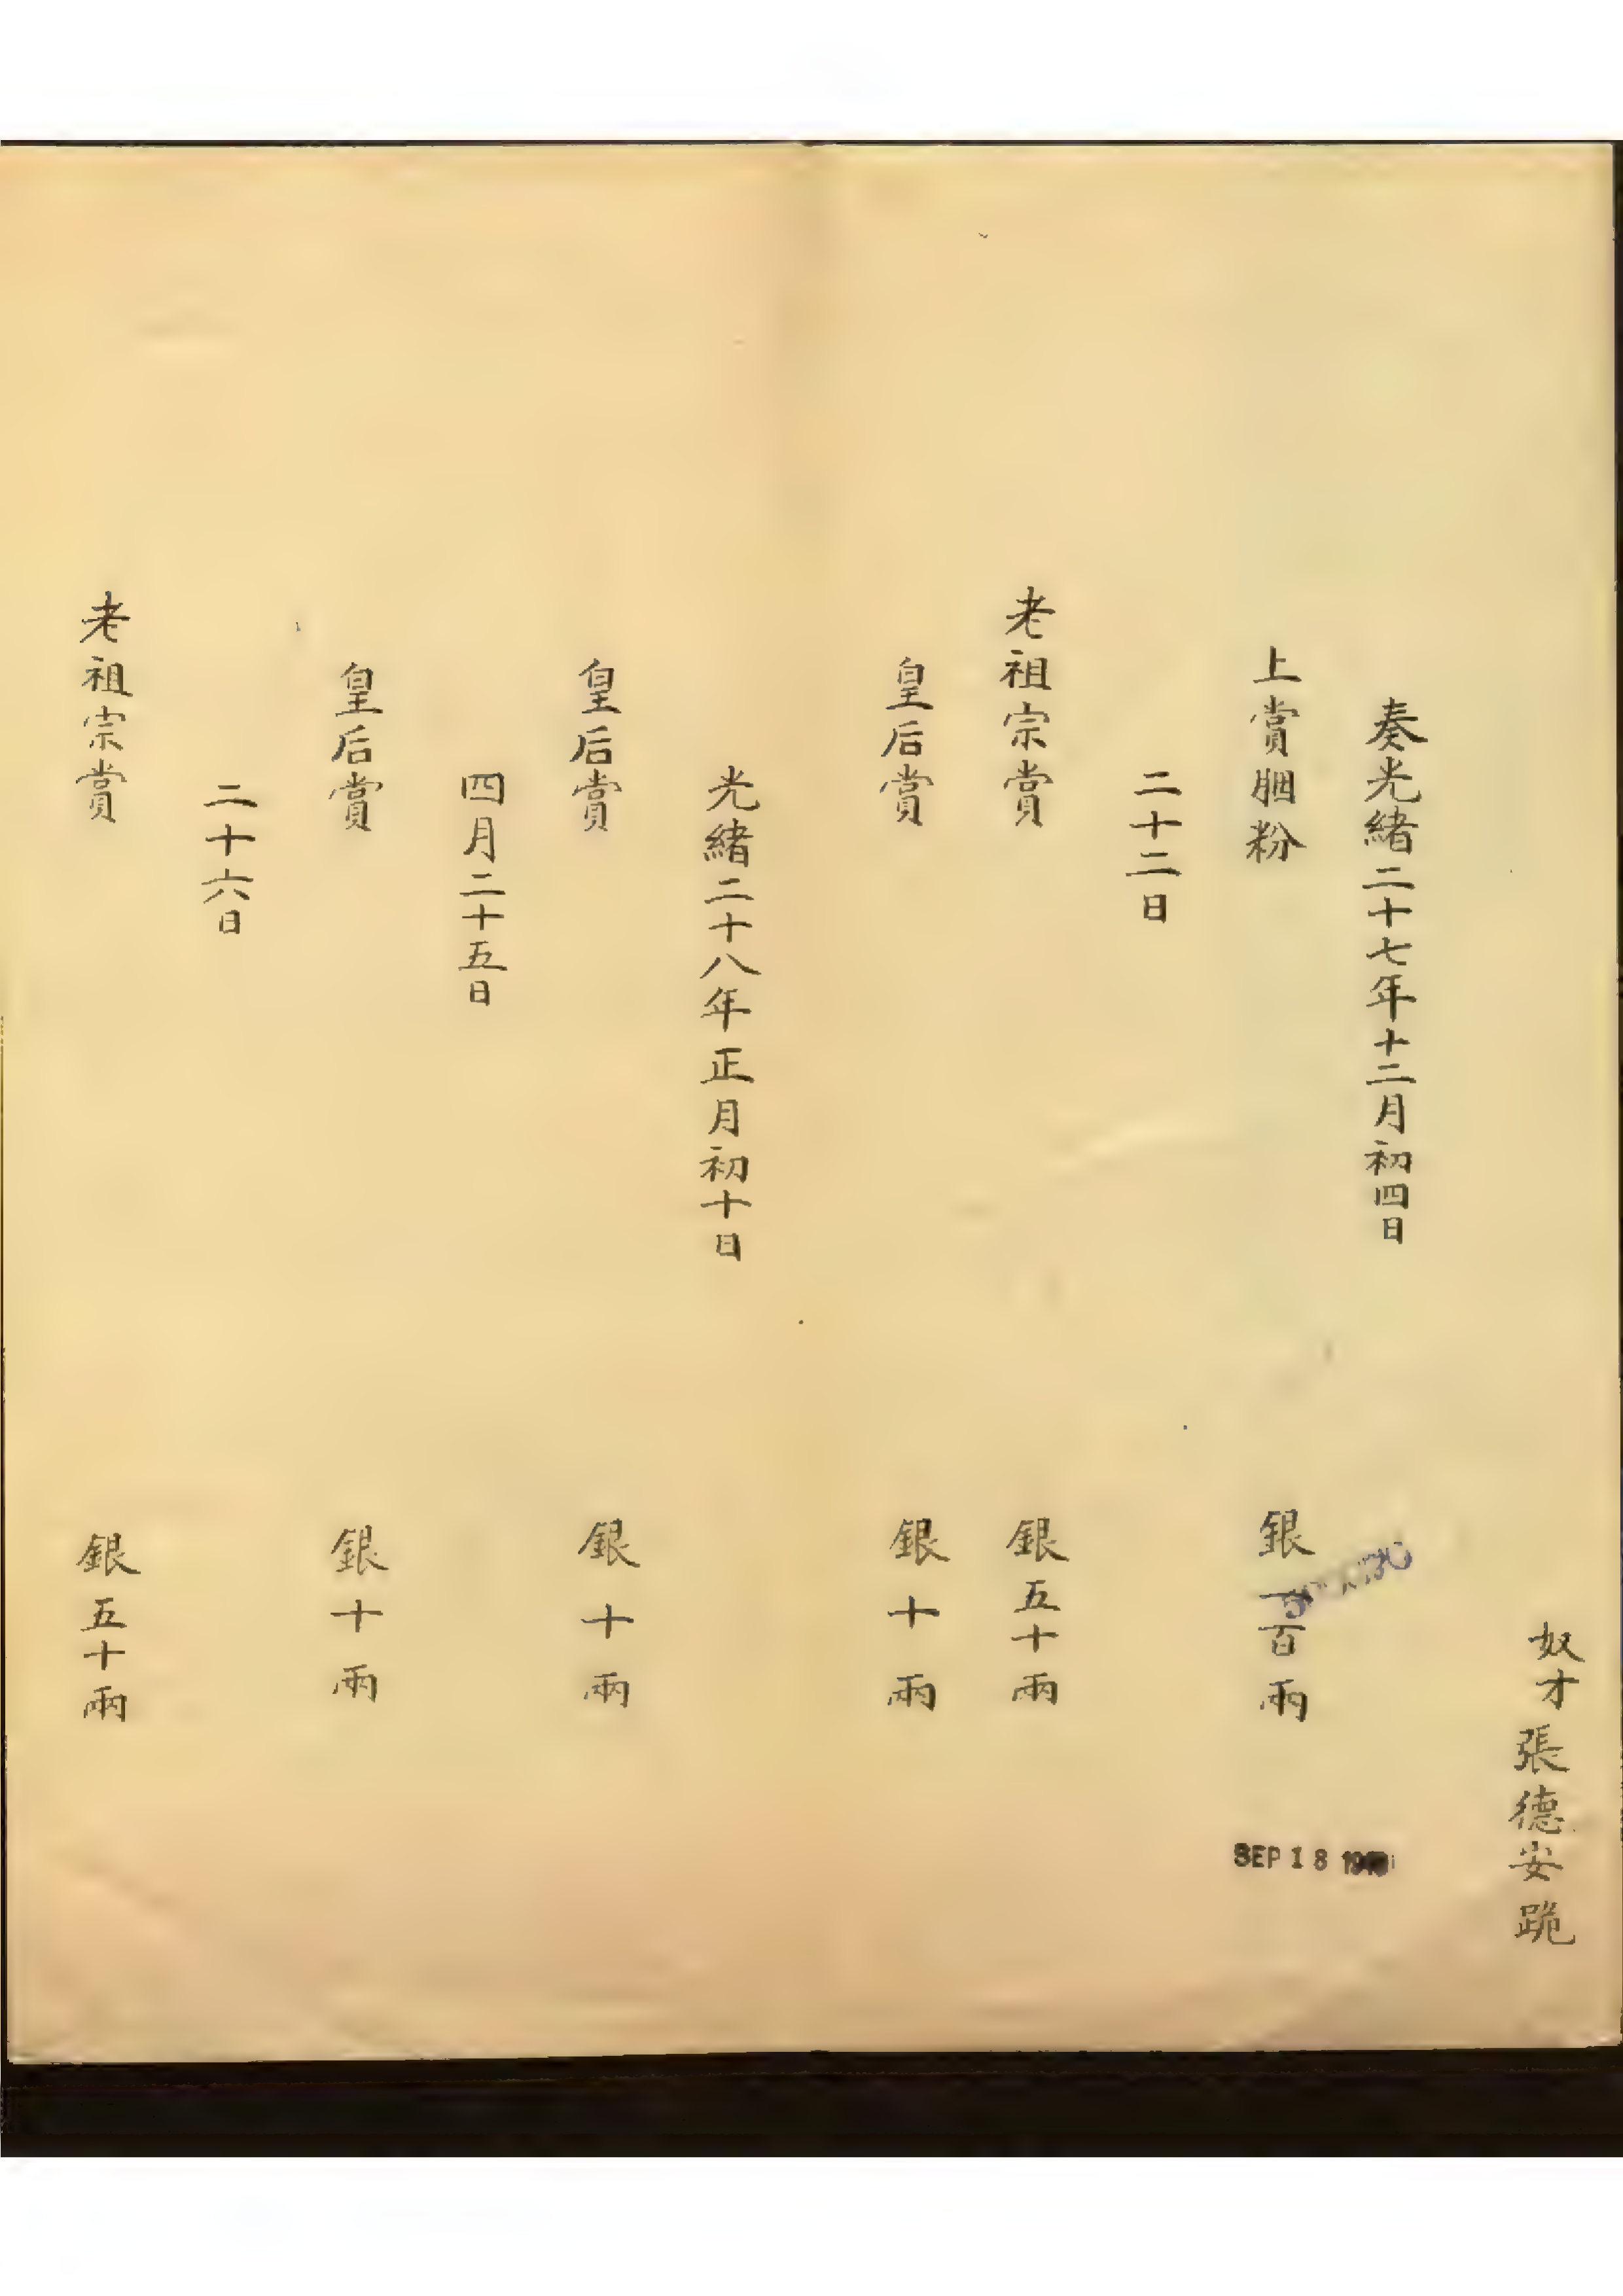 奴才張德安跪
奏光緒二十七年十二月初四日
上賞胭粉 銀一百兩
二十二日
老祖宗賞 銀五十兩
皇后賞 銀十兩
光緒二十八年正月初十日
皇后賞 銀十兩
四月二十五日
皇后賞 銀十兩
二十六日
老祖宗賞 銀五十兩
SEP 18